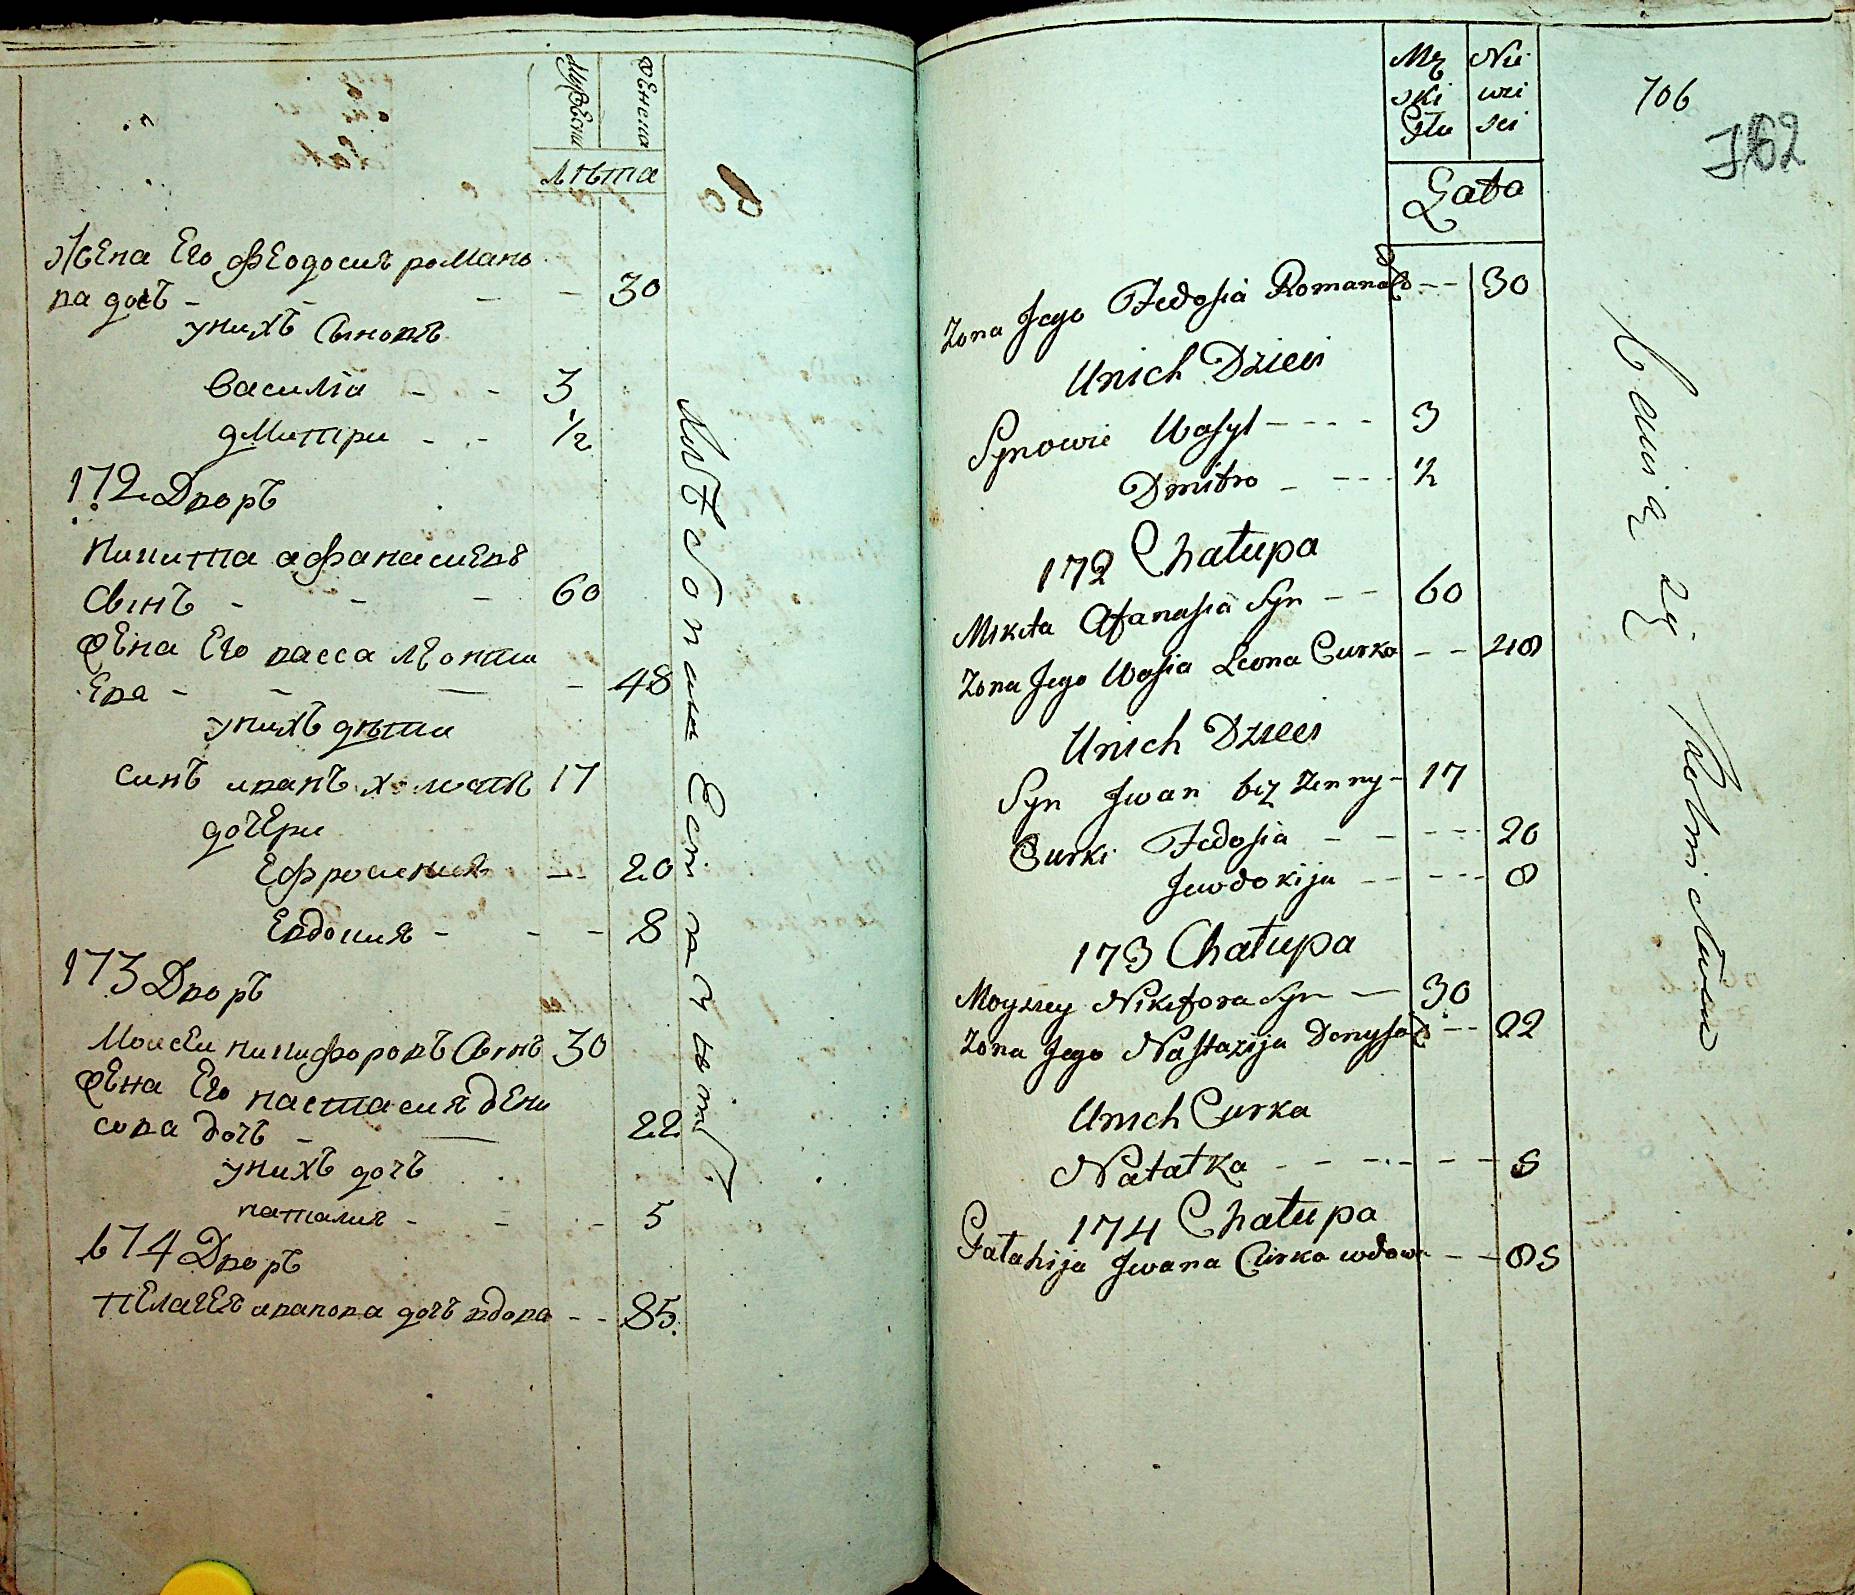 мужеска
женска
лѣта
Жена Его феодосия романо
ва доч -
30
унихъ Сыновѣ
василиа - - 3
дмитри - - 1/2
172 Дворъ
никита афанасиевъ
Сынъ - - - 60
жена Его васса леонти
Ева - - - 48
унихъ дѣти
синъ иванъ холостъ 17
дочери
Ефросиния - - 20
Евдокия - - - 8
173 Дворъ
Моисеи никифоровъ Сынъ 30
жена Его настасия дени
сова дочъ - 22
унихъ дочъ
наталия - - - 5
174 Дворъ
пЕлагЕя иванова дочъ вдова - - 85.
Mę Nie
ski wi
Stu sci
Łata
706
762
Zona Jego Fedosia Romana C -- 30
Unich Dzieci
Synowie Wasyl - - - - 3
Dmitro - - - - 1/2
172 Chałupa
Mikita Afanasia Syn - - 60
Zona Jego Wasia Leona Curka - - 48
Unich Dzieci
Syn Jwan bez Zenny - 17
Curki Fedosia - - - - - 20
Jewdokija - - - - - 8
173 Chałupa
Moyzey Nikifora Syn - 30
Zona Jego Nastazija Denysa C - - 22
Unich Curka
Natałka - - - - - - - 5
174 Chałupa
Pałahija Jwana Curka wdowa - - 85